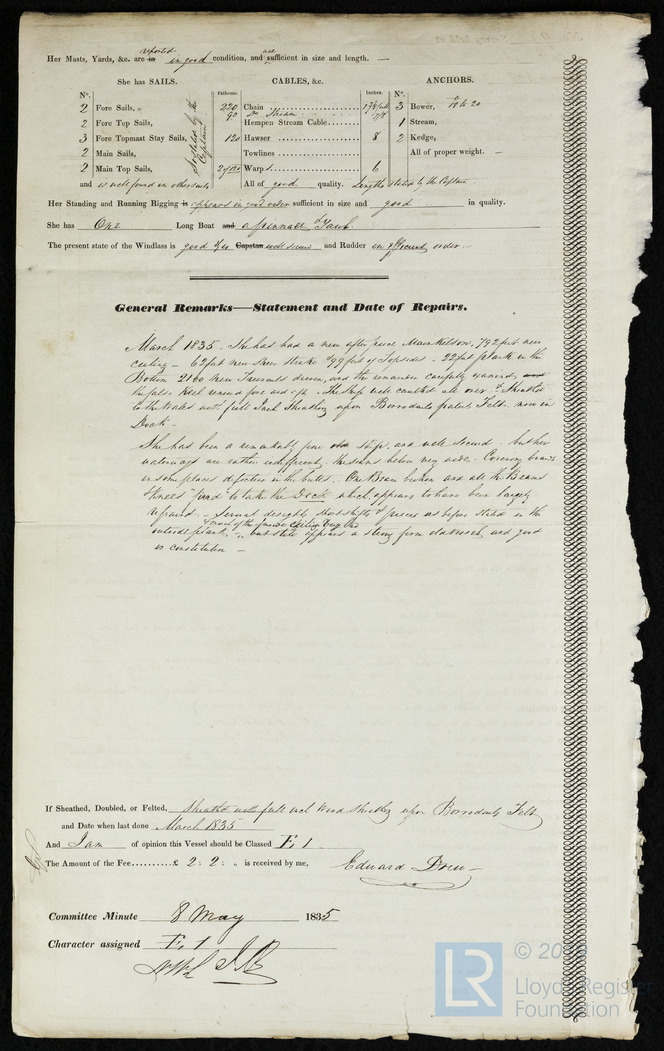 Her Masts, Yards, &c. are is reported in good condition, and are sufficient in size and length. —
She has SAILS. CABLES, &c. ANCHORS.
N°. Fathoms. Inches. N°.
2 Fore Sails, 220 Chain 3 Bower,
2 Fore Top Sails, 90 Do Stream Hempen Stream Cable 1 Stream,
3 Fore Topmast Stay Sails, 120 Hawser 8 2 Kedge,
2 Main Sails, Towlines All of proper weight. —
2 Main Top Sails, Warps 6
As stated by the Captain
and is well found in other sails All of good quality. lengths stated by the Captain
Her Standing and Running Rigging is appears in good order sufficient in size and good in quality.
She has One Long Boat and a pinnace &
The present state of the Windlass is good Capstan well secured and Rudder in efficient order. —
General Remarks—Statement and Date of Repairs.
March 1835 – She has had a new after piece Main Kelson, 792 feet new
ceiling – 62 feet new Sheer strake & 99 feet of Topsides – 22 feet plank in the
Bottom 2100 New Treenails driven, and the remainder carefully examined, and
the false Keel renewed fore and aft – The Ship well caulked all over & Sheathed
to the Wales with full Inch Sheathing upon Borrodaile's patent Felt. now in
Dock –
She has been a remarkably fine old Ship, and well secured – but her
waterways are rather indifferent, the seams being very wide. Covering boards
in some places defective in the butts. One Beam broken and all the Beams
& Knees to take the Deck which appears to have been largely
repaired. – Several short shifts & pieces as before stated in the
outside plank, & some of the ceiling but still appears a strong firm old vessel, and good
in constitution –
If Sheathed, Doubled, or Felted, Sheathed with full inch Wood Sheathing upon Borrodaile's Felt
and Date when last done March 1835
And I am of opinion this Vessel should be Classed E 1
The Amount of the Fee £ 2 : 2 : „ is received by me, Edward Drew
Committee Minute 8 May 1835
Character assigned E 1
LR © 20
Lloyd's Register
Foundation